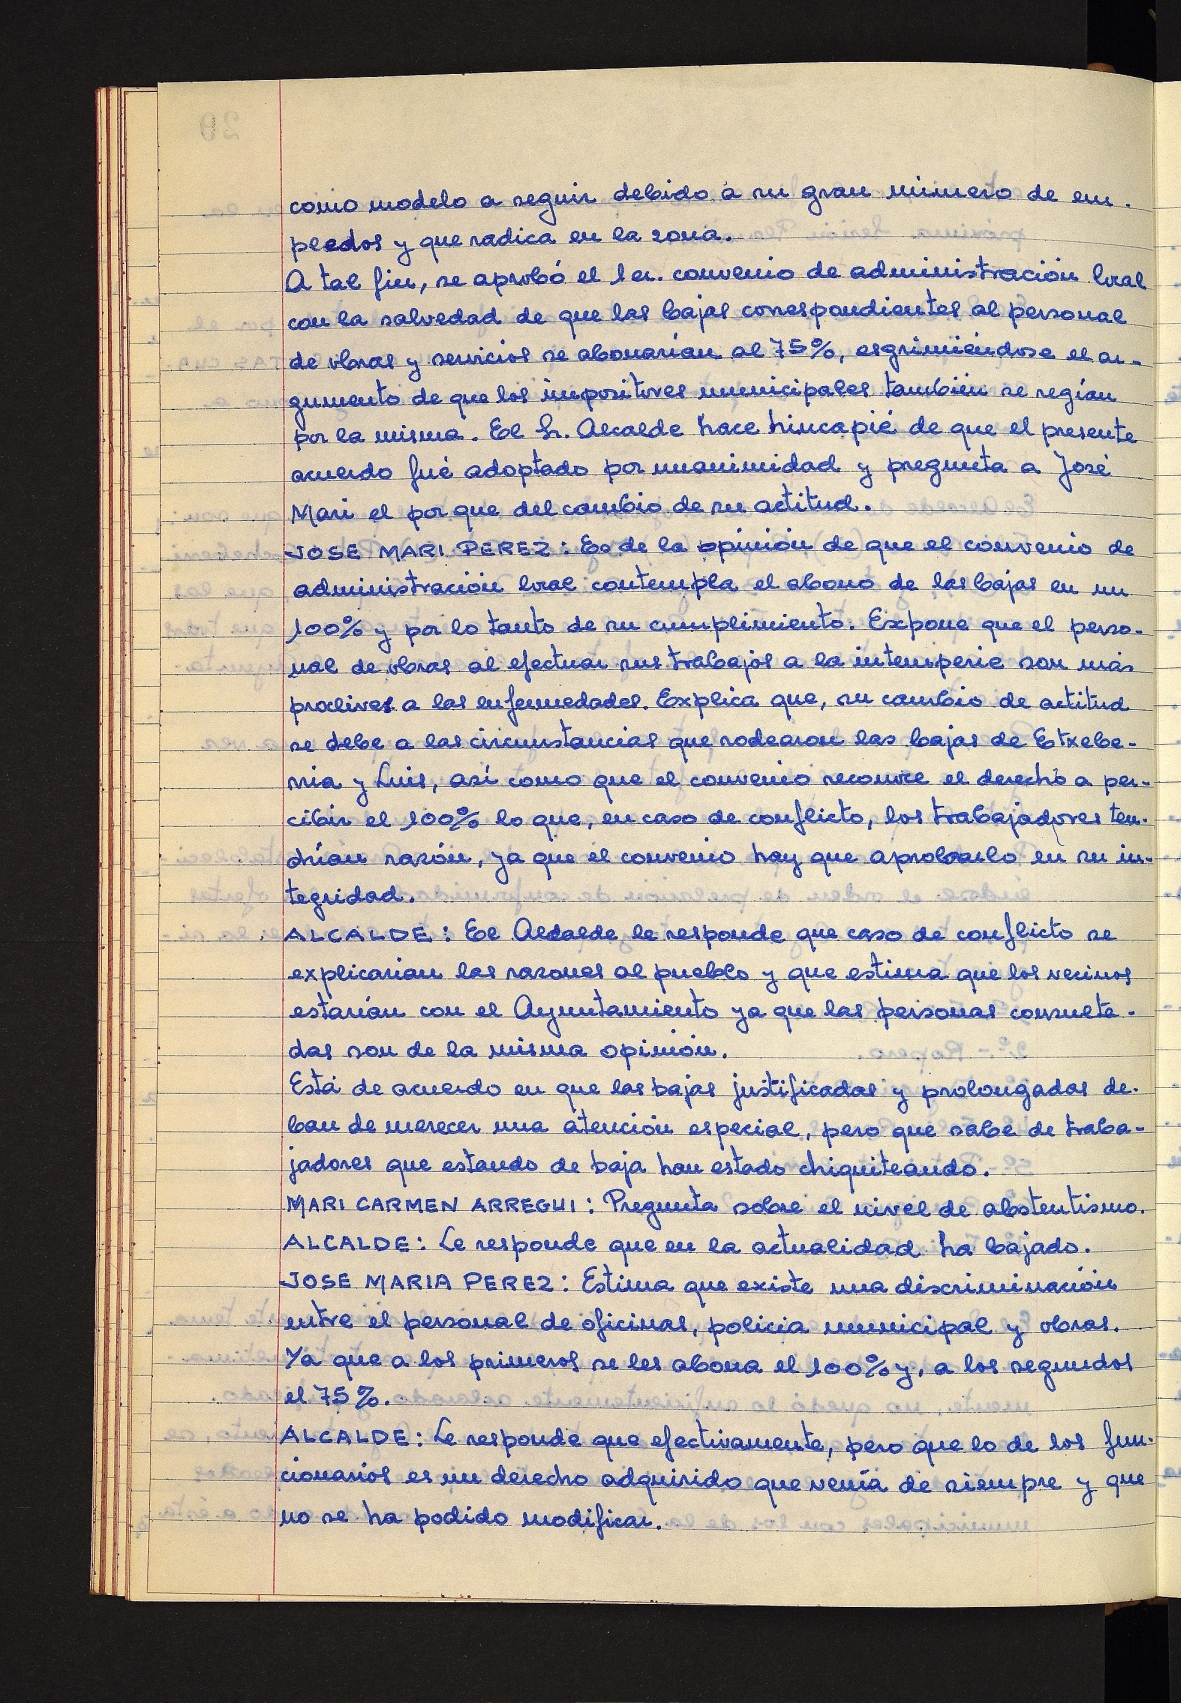 como modelo a seguir debido a su gran número de em-
pleados y que radica en la zona.
A tal fin, se aprobó el 1er. convenio de administración local
con la salvedad de que las bajas correspondientes al personal
de obras y servicios se abonarían al 75%, esgrimiéndose el ar-
gumento de que los impositores municipales también se regían
por la misma. El Sr. Alcalde hace hincapié de que el presente
acuerdo fué adoptado por unanimidad y pregunta a José
Mari el por que del cambio de su actitud.
JOSE MARI PEREZ: Es de la opinión de que el convenio de
administración local contempla el abono de las bajas en un
100% y por lo tanto de su cumplimiento. Expone que el perso-
nal de obras al efectuar sus trabajos a la intemperie son más
proclives a las enfermedades. Explica que, su cambio de actitud
se debe a las circunstancias que rodearon las bajas de Etxebe-
rria y Luis, así como que el convenio reconoce el derecho a per-
cibir el 100% lo que, en caso de conflicto, los trabajadores ten-
drían razón, ya que el convenio hay que aprobarlo en su in-
tegridad.
ALCALDE: El Alcalde le responde que caso de conflicto se
explicarían las razones al pueblo y que estima que los vecinos
estarían con el Ayuntamiento ya que las personas consulta-
das son de la misma opinión.
Está de acuerdo en que las bajas justificadas y prolongadas de-
ban de merecer una atención especial, pero que sabe de traba-
jadores que estando de baja han estado chiquiteando.
MARI CARMEN ARREGUI: Pregunta sobre el nivel de abstentismo.
ALCALDE: Le responde que en la actualidad ha bajado.
JOSE MARIA PEREZ: Estima que existe una discriminación
entre el personal de oficinas, policia municipal y obras.
Ya que a los primeros se les abona el 100% y, a los segundos
el 75%.
ALCALDE: Le responde que efectivamente, pero que lo de los fun-
cionarios es un derecho adquirido que venía de siempre y que
no se ha podido modificar.